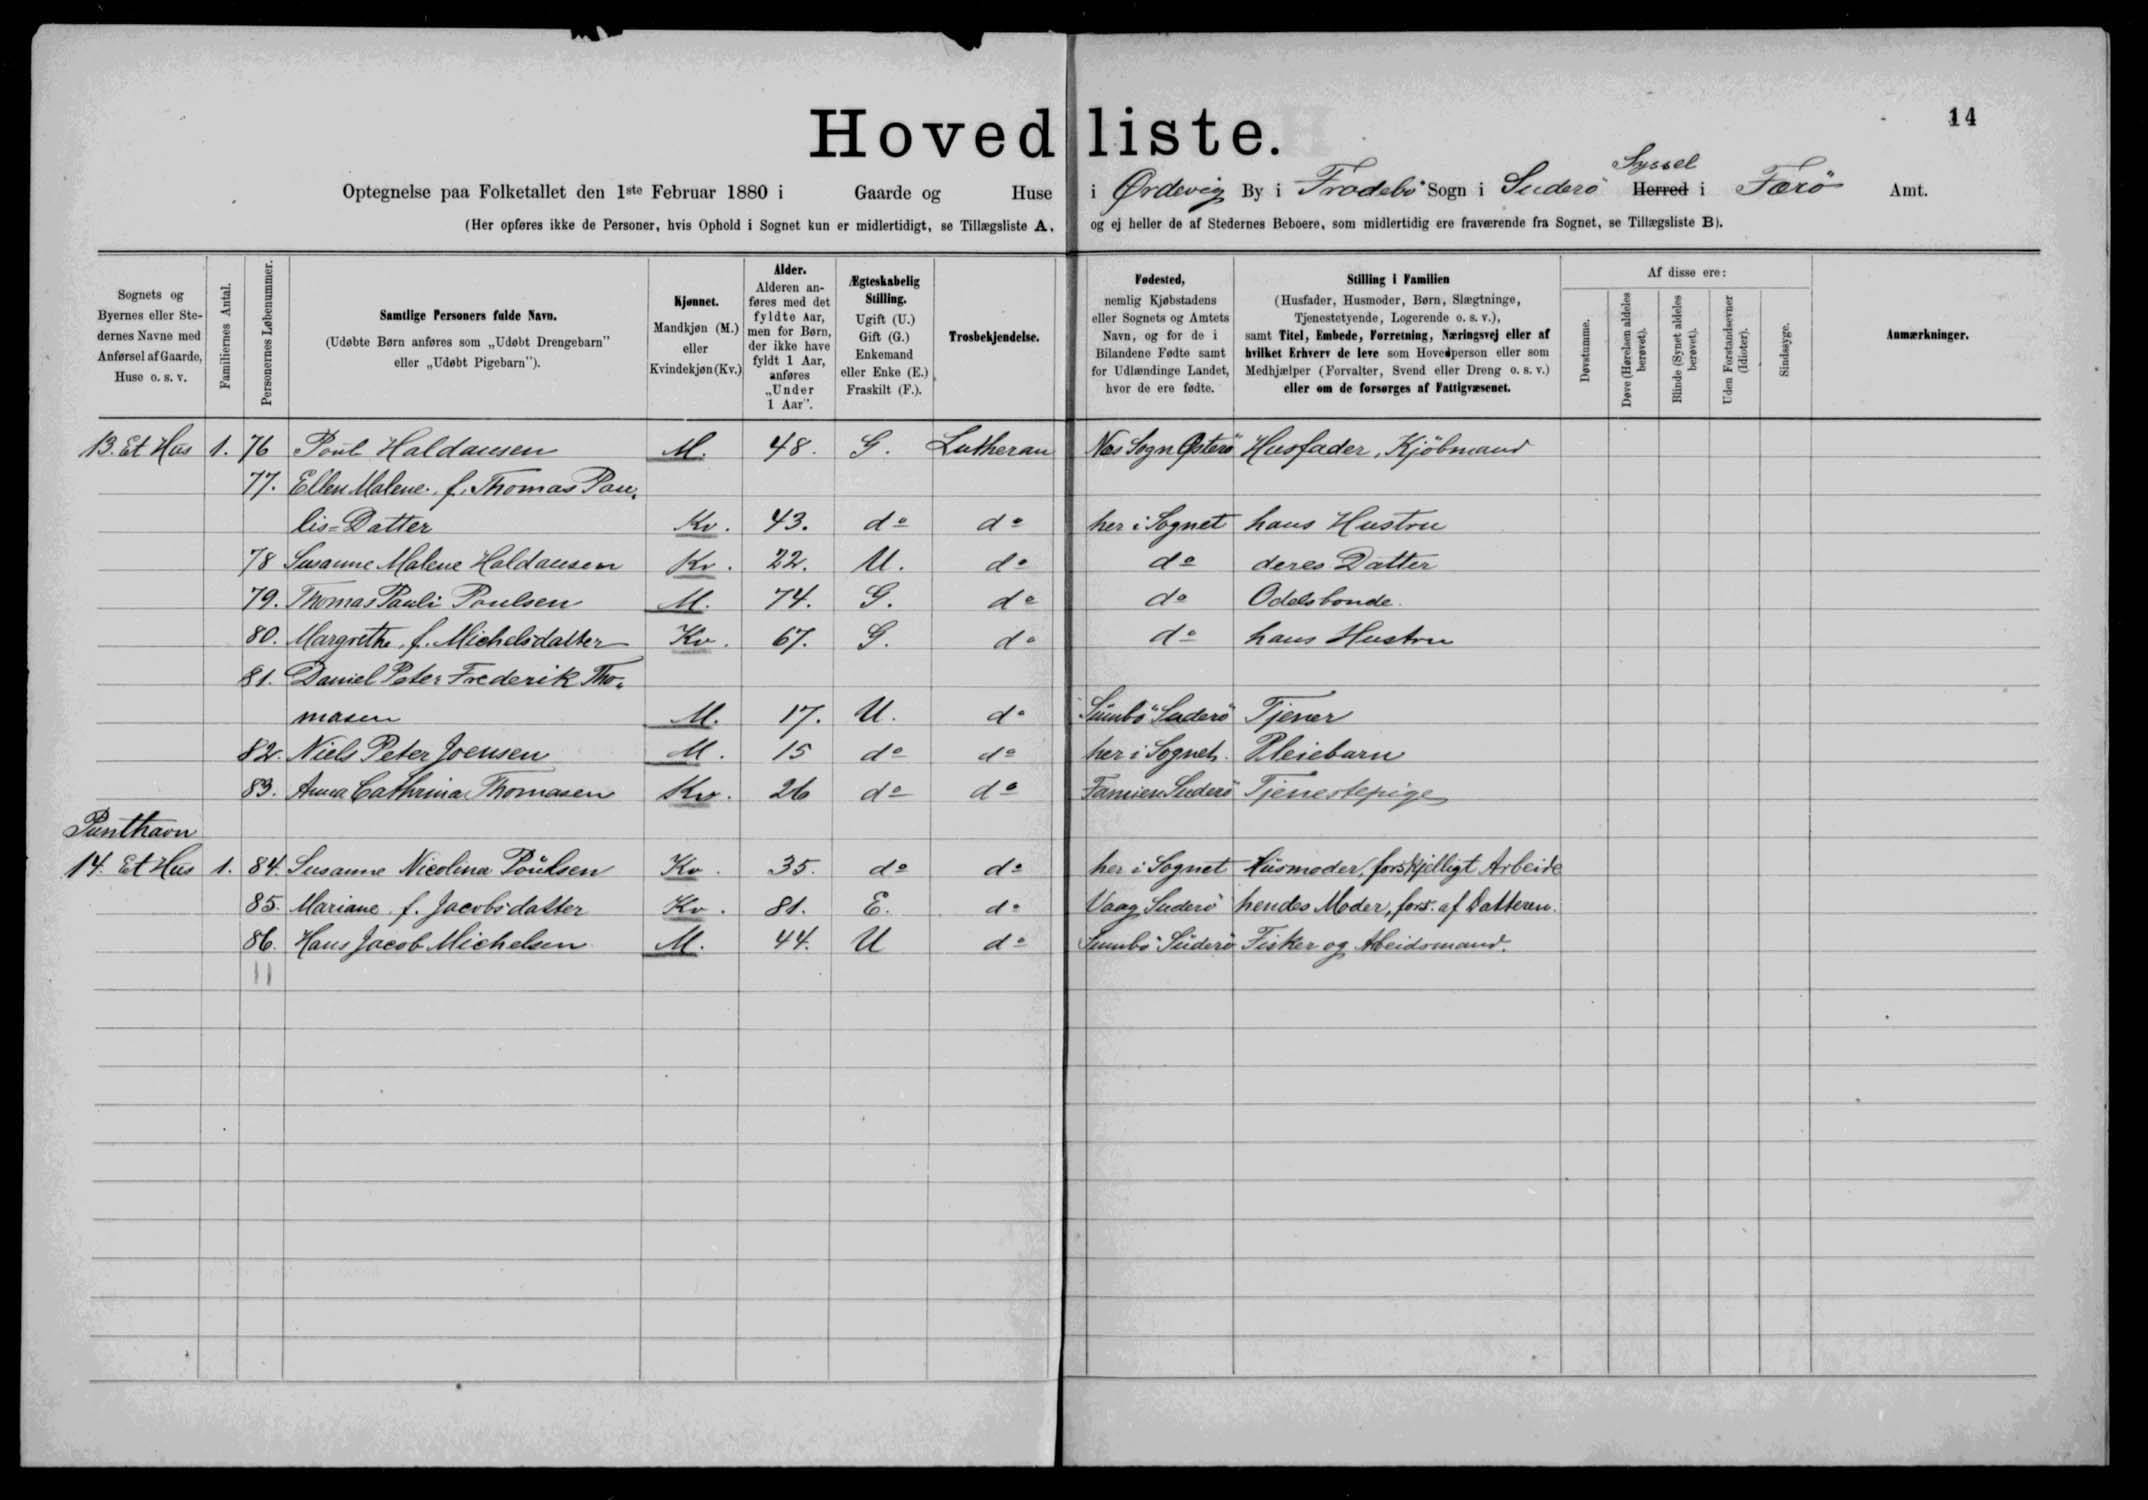 14
Hovedliste.
Optegnelse paa Folketallet den 1ste Februar 1880 i Gaarde og Huse i Ørdevig By i Frodebö Sogn i Suderö Syssel Herred i Færö Amt.
(Her opføres ikke de Personer, hvis Ophold i Sognet kun er midlertidigt, se Tillægsliste A, og ej heller de af Stedernes Beboere, som midlertidig ere fraværende fra Sognet, se Tillægsliste B).
Sognets og Byernes eller Stedernes Navne med Anførsel af Gaarde, Huse o. s. v.
Familiernes Antal.
Personernes Løbenummer.
Samtlige Personers fulde Navn.
(Udøbte Børn anføres som „Udøbt Drengebarn" eller „Udøbt Pigebarn").
Kjønnet.
Mandkjøn (M.) eller Kvindekjøn (Kv.)
Alder.
Alderen anføres med det fyldte Aar, men for Børn, der ikke have fyldt 1 Aar, anføres „Under 1 Aar".
Ægteskabelig Stilling.
Ugift (U.) Gift (G.) Enkemand eller Enke (E.) Fraskilt (F.).
Trosbekjendelse.
Fødested,
nemlig Kjøbstadens eller Sognets og Amtets Navn, og for de i Bilandene Fødte samt for Udlændinge Landet, hvor de ere fødte.
Stilling i Familien
(Husfader, Husmoder, Børn, Slægtninge, Tjenestetyende, Logerende o. s. v.),
samt Titel, Embede, Forretning, Næringsvej eller af hvilket Erhverv de leve som Hovedperson eller som Medhjælper (Forvalter, Svend eller Dreng o. s. v.) eller om de forsørges af Fattigvæsenet.
Af disse ere:
Døvstumme.
Døve (Hørelsen aldeles berøvet).
Blinde (Synet aldeles berøvet).
Uden Forstandsevner (Idioter).
Sindssyge.
Anmærkninger.
13. Et Hus 1. 76 Poul Haldansen M. 48. G. Lutheran Næs Sogn Österö Husfader, Kjöbmand
77. Ellen Malene, f. Thomas Pau-
lis=Datter Kv. 43. do do her i Sognet hans Hustru
78 Susanne Malene Haldansen Kv. 22. U. do do deres Datter
79. Thomas Pauli Poulsen M. 74. G. do do Odelsbonde.
80. Margrethe, f. Michelsdatter Kv. 67. G. do do hans Hustru
81. Daniel Peter Frederik Tho-
masen M. 17. U. do Sumbö Suderö Tjener
82. Niels Peter Joensen M. 15 do do her i Sognet. Pleiebarn
83. Anna Cathrina Thomasen Kv. 26 do do Famien Suderö Tjenestepige
Punthavn
14. Et Hus 1. 84. Susanne Nicolina Poulsen Kv. 35. do do her i Sognet Husmoder, forskjelligt Arbeide
85. Mariane f. Jacobsdatter Kv. 81. E. do Vaag Suderö hendes Moder, fors. af Datteren.
86. Hans Jacob Michelsen M. 44. U do Sumbö Suderö Fisker og Abeidsmand.
11